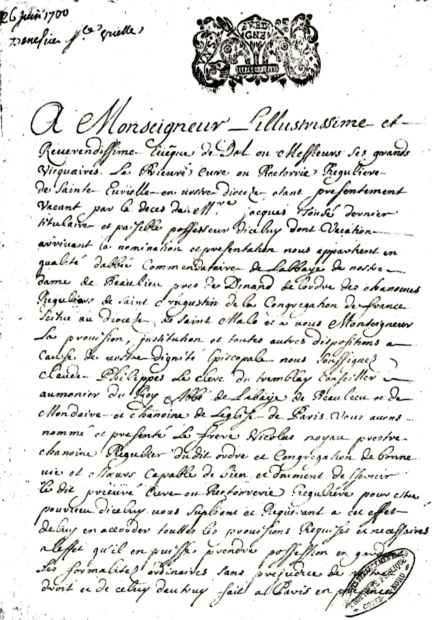 26 juin 1700
Benefice Ste Urielle
A Monseigneur Lillustrissime et
Reverendissime Evêque de Dol ou Messieurs ses grands
Vicquaires. Le Prieuré Cure ou Rectorie Reguliere
de Sainte Eurielle en vostre diocese estant presentement
vacant par le deces de Mre jacques dernier
titulaire et paisible possesseur diceluy dont vacation
arrivant la nomination et presentation nous appartient en
qualité dabbé Commendataire de Labbaye de nostre
dame de Beaulieu pres de Dinand de Lordre des chanoines
Reguliers de Saint augustin de la Congregation de france
scitué au diocese de Saint Malo et a vous Monseigneur
La provision, institution et toutes autres dispositions a
cause de vostre dignité Episcopale nous soussignés
Claude Philippes Le clerc du tremblay Conseiller
aumonier du Roy Abbé de Labbaye de Beaulieu et de
Mondaire et chanoine de Leglise de Paris vous avons
nommé et presenté Le frere Nicolas noyau prestre
chanoine Regulier dudit ordre et Congregation de bonne
vie et mœurs capable de bien et duement desservir
le dit prieuré Cure ou Rectorrerie Reguliere pour estre
pourveu diceluy vous supliant et Requerant a cet effet
de luy en accorder touttes les provisions Requises et necessaires
a leffet qu'il en puisse prendre possession en gardant
ses formalités ordinaires sans prejudice de nostre
droit et de celuy dautruy fait a Paris en presence